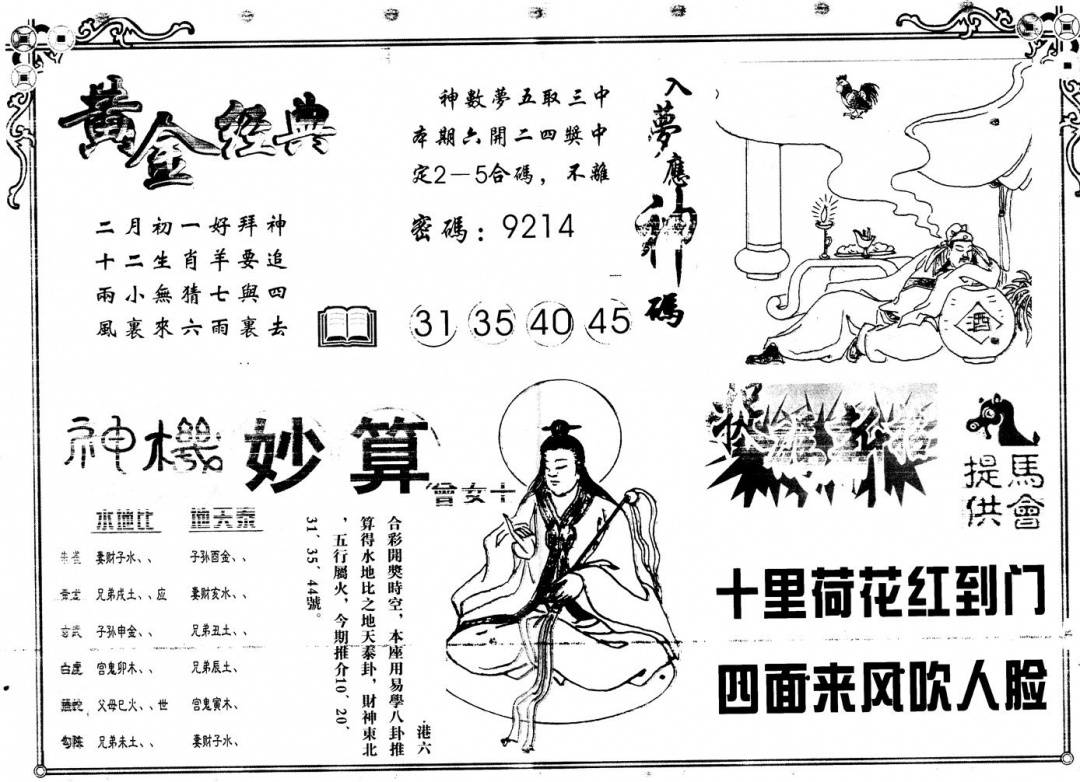 黃金經典
二月初一好拜神
十二生肖羊要追
兩小無猜七與四
風裏來六雨裏去
神數夢五取三中
本期六開二四獎中
定2－5合碼，不離
密碼：9214
31 35 40 45
入夢應神碼
酒
神機妙算
水地比 地天泰
朱雀 妻財子水、、 子孙酉金、、
青龙 兄弟戌土、、应 妻財亥水、、
玄武 子孙申金、、 兄弟丑土、、
白虎 宫鬼卯木、、 兄弟辰土、
螣蛇 父母巳火、、世 宫鬼寅木、
勾陈 兄弟未土、、 妻財子水、
曾女士
港六
合彩開獎時空，本座用易學八卦推
算得水地比之地天泰卦，財神東北
，五行屬火，今期推介10、20、
31、35、44號。
馬會
提供
十里荷花红到门
四面来风吹人脸